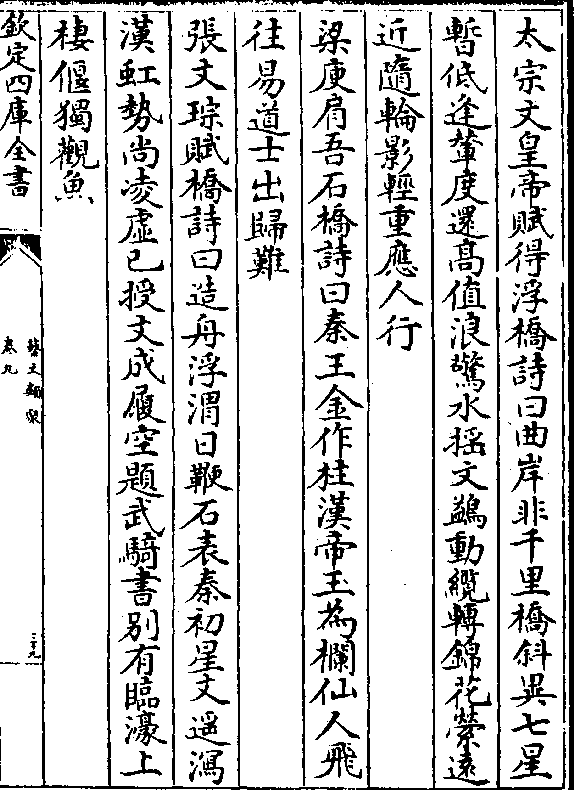 太宗文皇帝賦得浮橋詩曰曲岸非千里橋斜異七星
暫低逢輦度還髙值浪驚水揺文鷁動纜轉錦花縈遠
近隨輪影輕重應人行
梁庾肩吾石橋詩曰秦王金作柱漢帝玉為欄仙人飛
往易道士出歸難
張文琮賦橋詩曰造舟浮渭日鞭石表秦初星文遥瀉
漢虹勢尚凌虛已授文成履空題武騎書别有臨濠上
棲偃獨觀魚
欽定四庫全書
藝文類聚
卷九
三十九